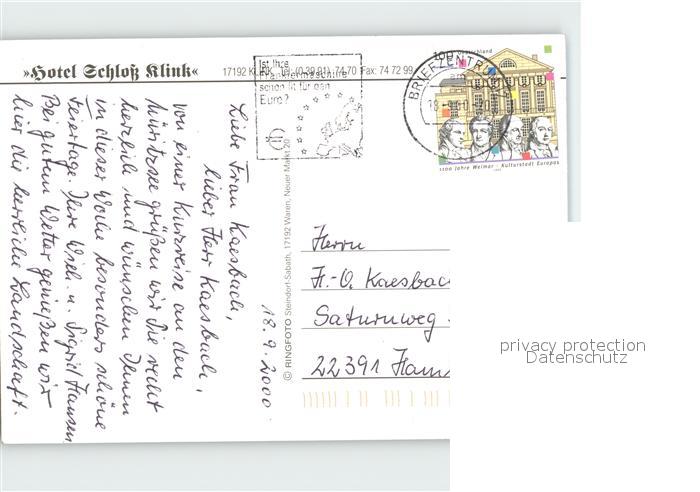 »Hotel Schloß Klink«
17192 Klink Tel. (0 39 91) 74 70 Fax: 74 72 99
Ist Ihre
Frankiermaschine
schon fit für den
Euro?
BRIEFZENTRUM
100 Deutschland
1100 Jahre Weimar - Kulturstadt Europas
18.9.2000
Liebe Frau Kaesbach,
lieber Herr Kaesbach,
von einer Kurzreise an den
Müritzsee grüßen wir Sie recht
herzlich und wünschen Ihnen
in dieser Woche besonders schöne
Feiertage. Ihre Wilh. u. Sigrid Hansen
Bei gutem Wetter genießen wir
hier die herrliche Landschaft.
© RINGFOTO Steindorf-Sabath, 17192 Waren, Neuer Markt 20
Herrn
H.-O. Kaesbac
Saturnweg
22391 Ham
privacy protection
Datenschutz